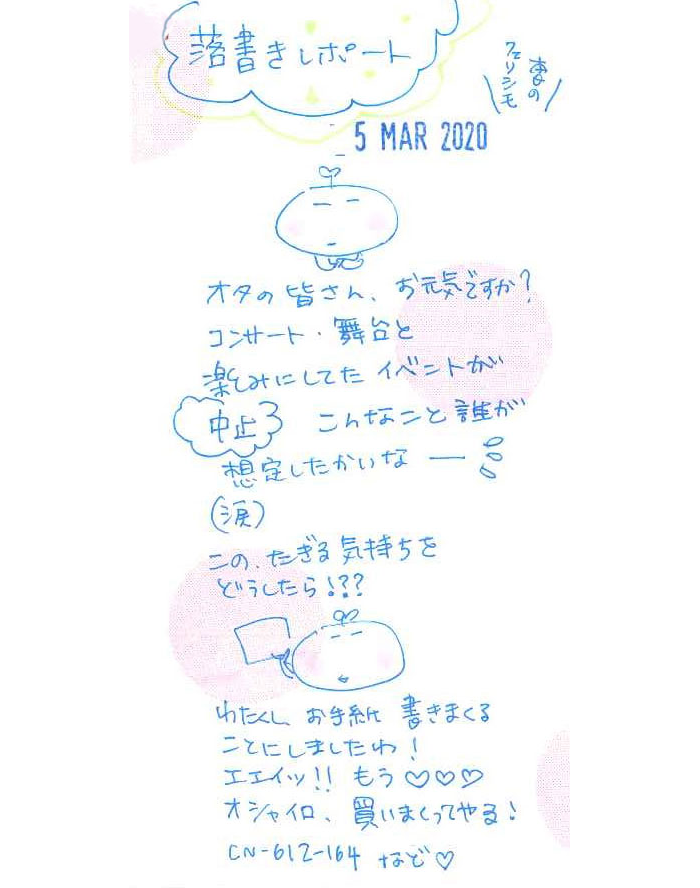 落書きレポート
春の
フェリシモ
5 MAR 2020
オタの皆さん、お元気ですか?
コンサート・舞台と
楽しみにしてたイベントが
中止 こんなこと誰が
想定したかいなー
(涙)
この、たぎる気持ちを
どうしたら!???
わたくし、お手紙 書きまくる
ことにしましたわ!
エエイッ!! もう♡♡♡
オシャイロ、買いまくってやる!
CN-612-164 など♡